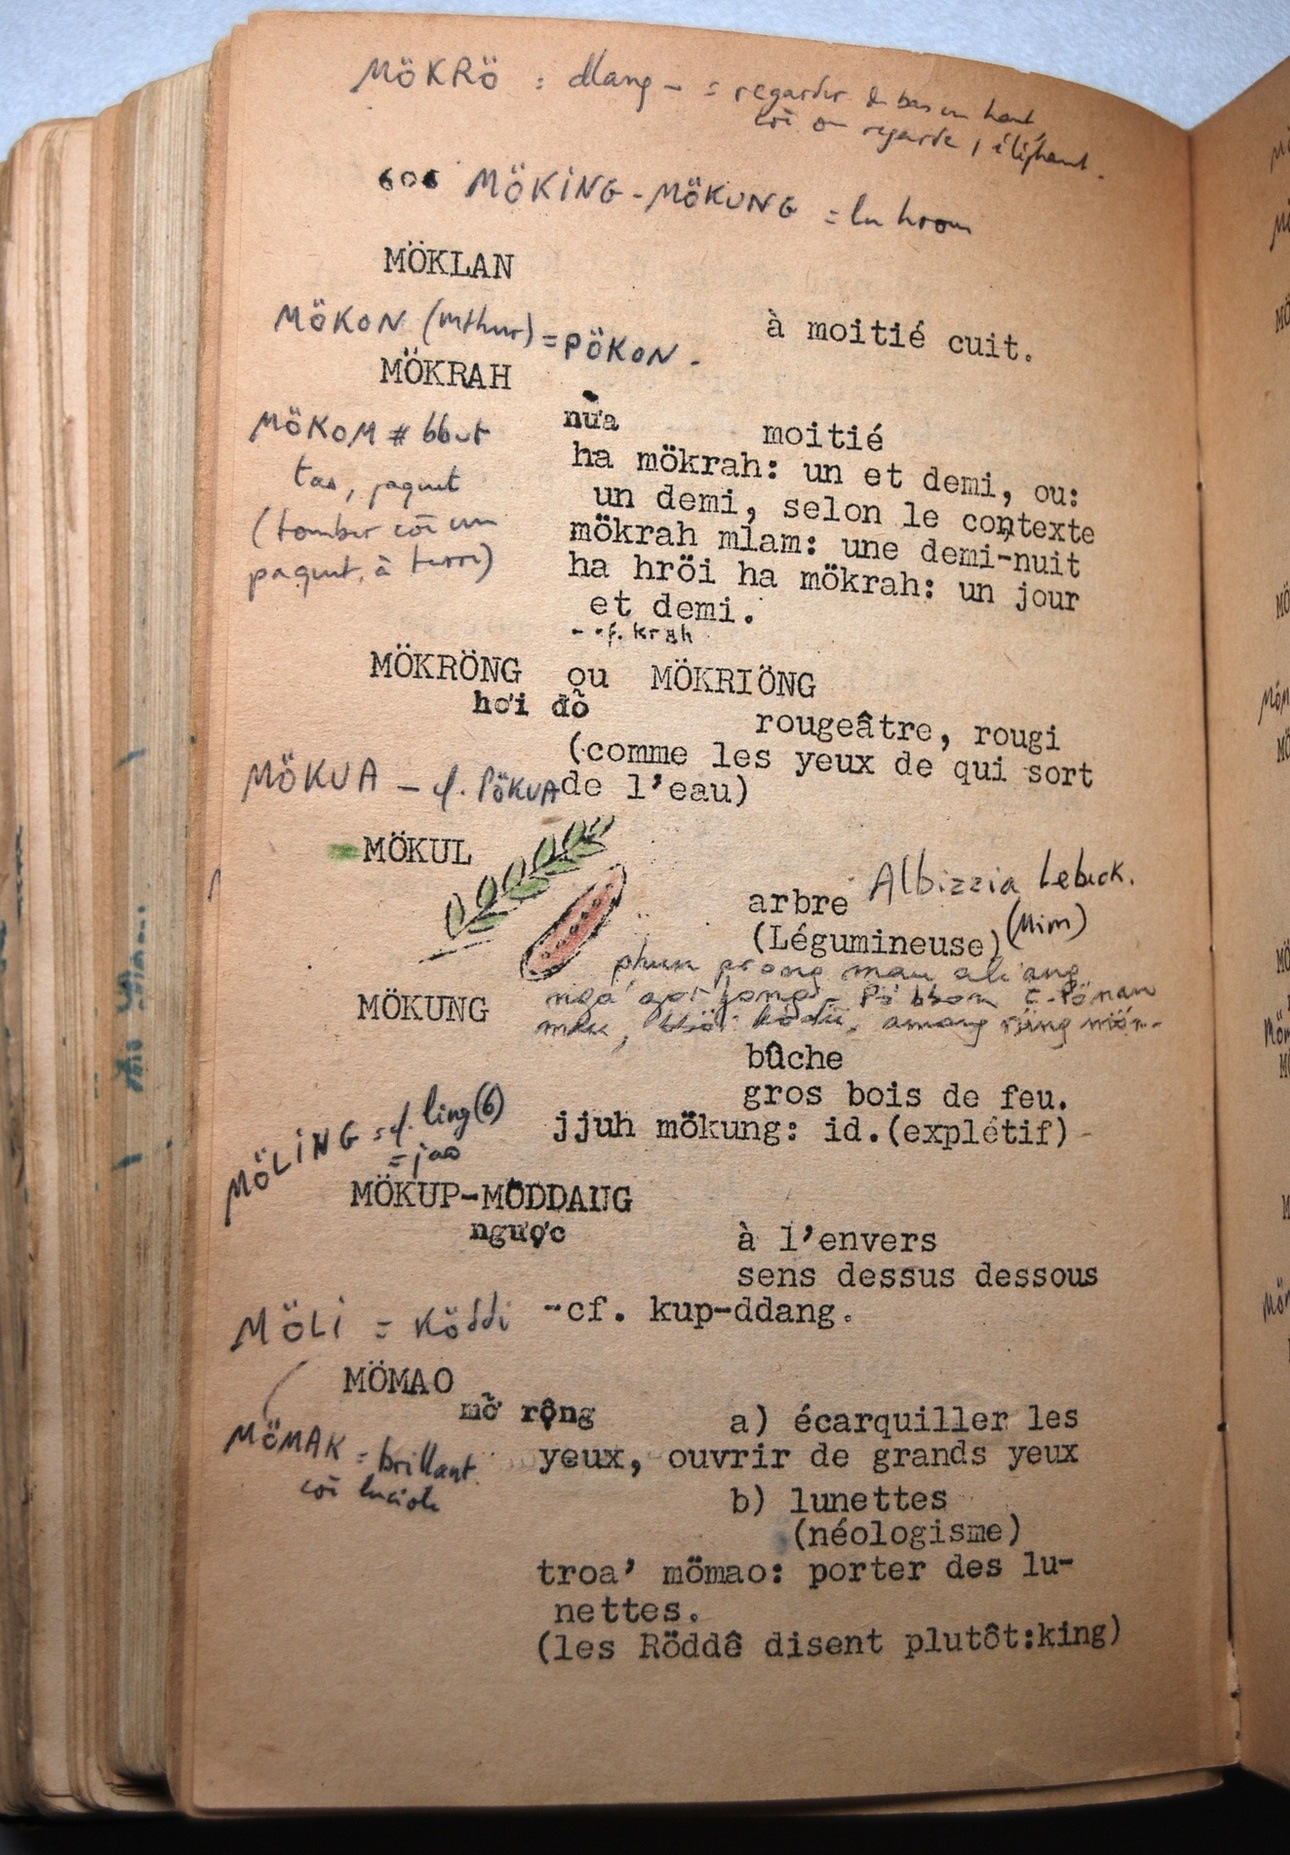 MÖKRÖ : dlang - = regarder de bas en haut
coē on regarde l'éléphant.
606 MÖKING-MÖKUNG = lu hrom
MÖKLAN
à moitié cuit.
MÖKON (mthur) = PÖKON.
MÖKRAH
nửa
moitié
MÖKOM # bbut
tao, paquet
(tomber coē un
paquet, à terre)
ha mökrah: un et demi, ou:
un demi, selon le contexte
mökrah mlam: une demi-nuit
ha hröi ha mökrah: un jour
et demi.
- cf. krah
MÖKRÖNG ou MÖKRIÖNG
hơi đỏ
rougeâtre, rougi
(comme les yeux de qui sort
de l'eau)
MÖKUA - cf. PÖKUA
MÖKUL
arbre Albizzia Lebeck.
(Légumineuse) (Mim)
phun prong mau
MÖKUNG
bûche
gros bois de feu.
jjuh mökung: id.(explétif)
MÖLING = cf. ling(6)
= jao
MÖKUP-MÖDDANG
ngược
à l'envers
sens dessus dessous
-cf. kup-ddang.
MÖLI = Köddi
MÖMAO
mở rộng
a) écarquiller les
yeux, ouvrir de grands yeux
MÖMAK = brillant
coē luciole
b) lunettes
(néologisme)
troa' mömao: porter des lu-
nettes.
(les Röddê disent plutôt:king)